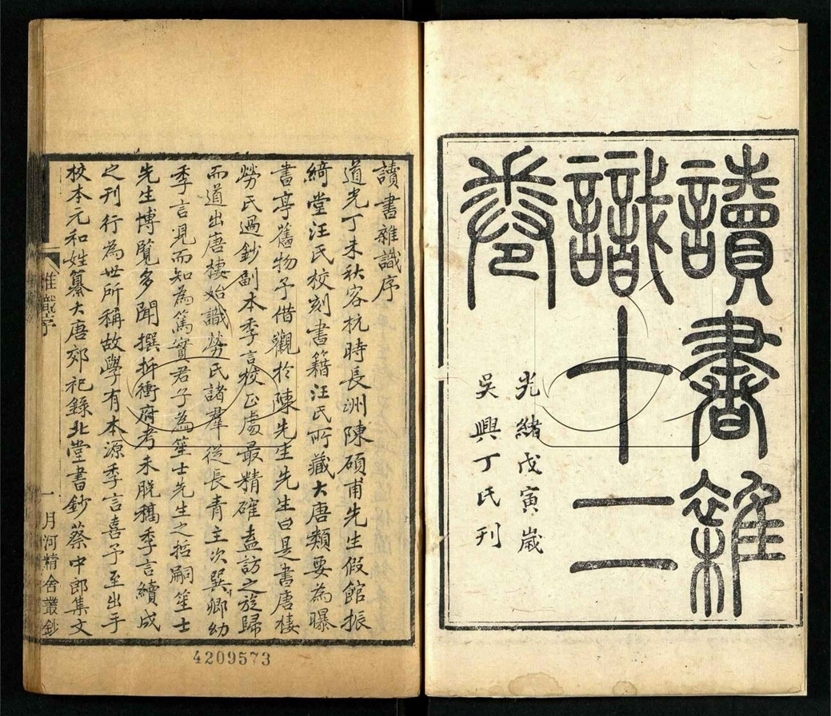 讀書雜
識十二
卷
光緒戊寅歲
吳興丁氏刊
讀書雜識序
道光丁未秋客杭時長洲陳碩甫先生假館振
綺堂汪氏校刻書籍汪氏所藏大唐類要為曝
書亭舊物予借觀於陳先生先生曰是書唐棲
勞氏過鈔副本季言校正處最精確盍訪之旋歸
而道出唐棲始識勞氏諸羣從長青主次巽卿幼
季言見而知為篤實君子為笙士先生之哲嗣笙士
先生博覽多聞撰折衝府考未脫稿季言續成
之刊行為世所稱故學有本源季言喜予至出手
校本元和姓纂大唐郊祀錄北堂書鈔蔡中郎集文
雜識序 一 月河精舍叢鈔
4209573